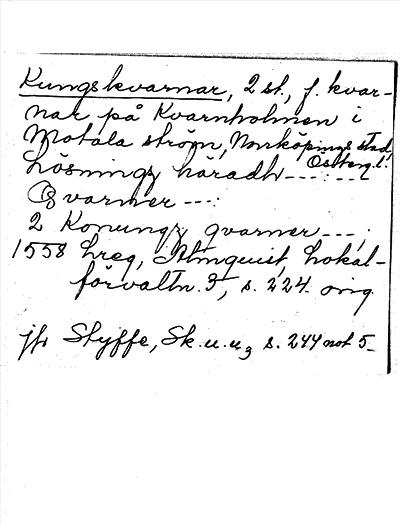 Kungskvarnar, 2 st., f. kvar-
nar på Kvarnholmen i
Motala ström, Norrköpings stad,
Österg.l.
Lösningz häradh ---:---:
Qvarner ---:
2 Konungz qvarner ---;
1558 hreg, Almquist, Lokal-
förvaltn. 3, s. 224. orig.
jfr Styffe, Sk.u.u3 s. 244 not 5-